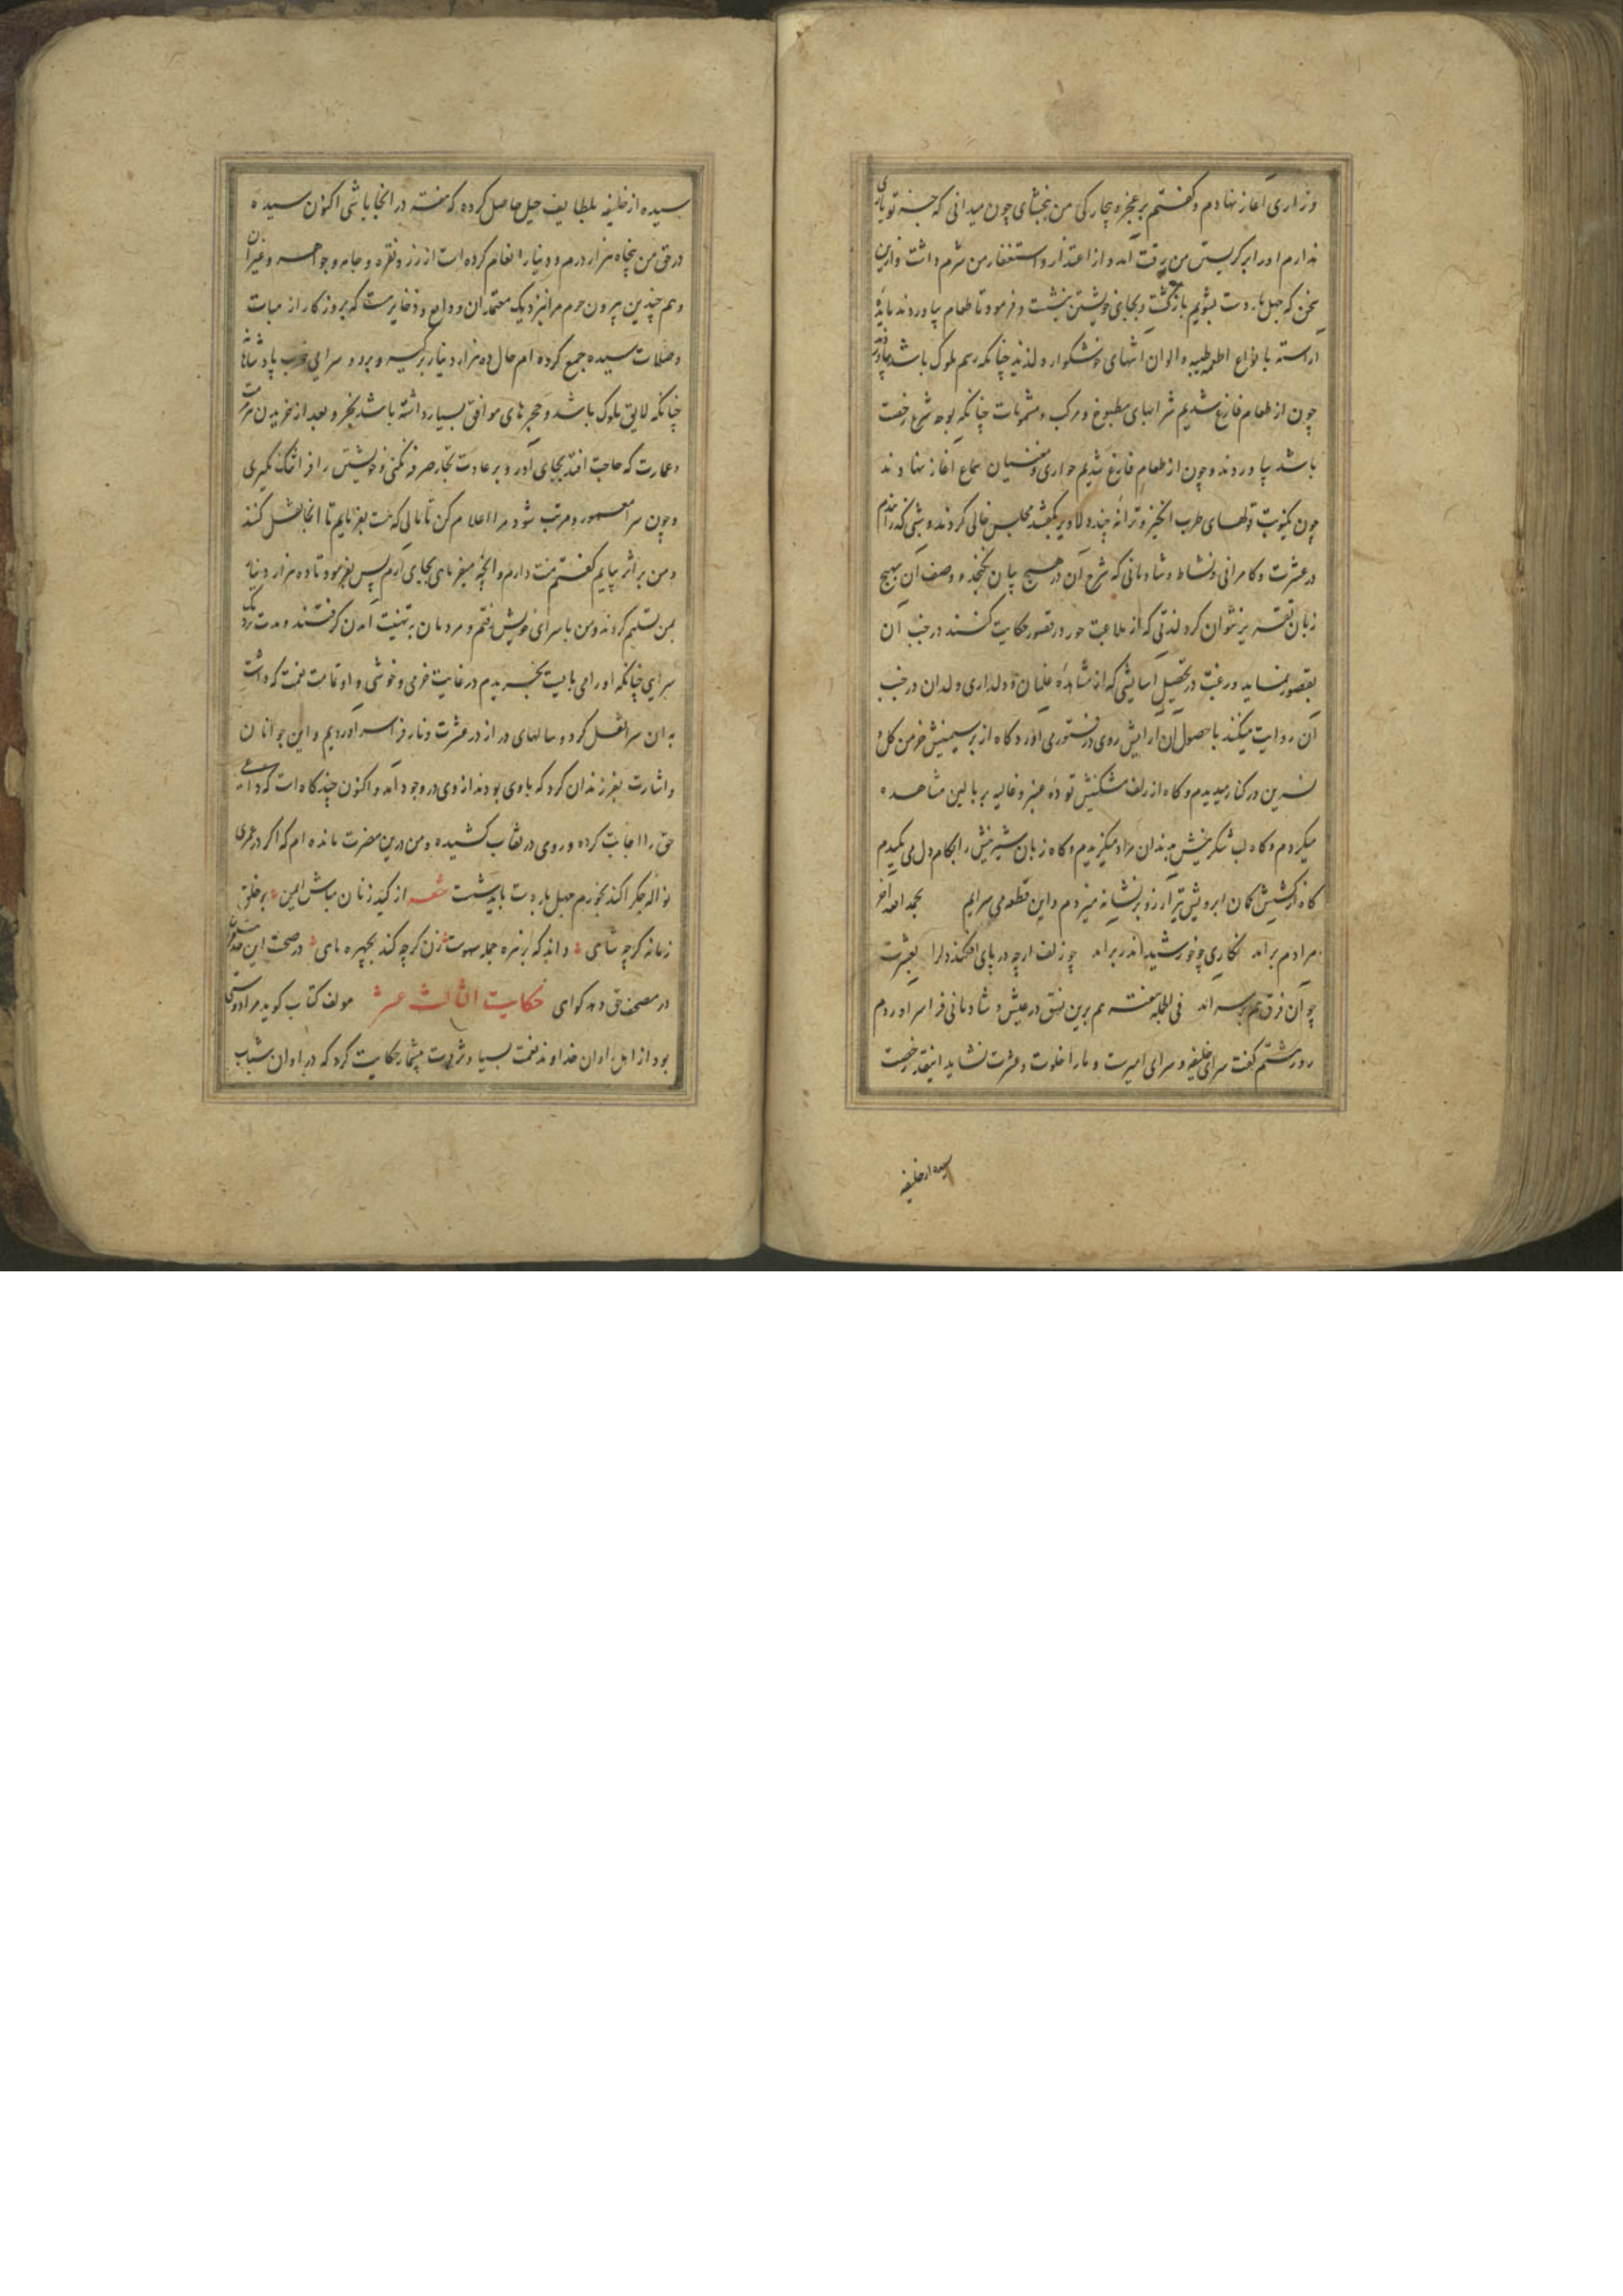 وزاری آغاز نهادم و گفتم بر عجز و بیچارگی من ببخشای چون میدانی که جز تو یاری
ندارم او را بر گریستن من رقت آمد و از اعتذار و استغفار من شرم داشت و ازین
سخن که چهل بار دست بشویم بازگشت و بجای خویشتن بنشست و فرمود تا طعام بیاوردند مایدهٔ
آراسته با انواع اطعمه طیبه و الوان اشهای خوشگوار و لذیذ چنانکه رسم ملوک باشد بیاوردند
چون از طعام فارغ شدیم شرابهای مطبوخ و مرکب و مشمومات چنانکه بوجه شرع رخصت
باشد بیاوردند و چون از طعام فارغ شدیم جواری و مغنیان سماع آغاز نهادند
چون یکنوبت قولهای طرب انگیز و ترانه چند دلاویز بگفتند مجلس خالی کردند و شبی گذراندم
در عشرت و کامرانی و نشاط و شادمانی که شرح آن در هیچ بیان نگنجد و وصف آن بهیچ
زبان تقریر نتوان کرد لذتی که از ملاعبت حور در قصور حکایت کنند در جنب آن
بقصور نماید و رغبت در تحصیل آسایشی که از مشاهدهٔ غلمان و دلداری ولدان در جنب
آن روایت میکنند با حصول آن آرایش روی در فتور می آورد گاه از بر سیمینش خرمن گل و
نسرین در کنار میدیدم و گاه از زلف مشکینش تودهٔ عنبر و غالیه بر بالین مشاهده
میکردم و گاه لب شکرینش بدندان مراد میگزیدم و گاه زبان شیرینش را بکام دل می مکیدم
گاه از کشش کمان ابرویش تیر آرزو بر نشانه میزدم و این قطعه می سرایم بحمد الله آخر
مرادم برآمد نگاری چو خورشید اندر بر آمد چو زلف ارچه در پای افکند دلرا بعشرت
چو آن فرق هم بر سر آمد فی الجمله هفته هم برین نسق در عیش و شادمانی فراسر آوردم
روز هشتم گفت سرای خلیفه و سرای امیرست و ما را خلوت و عشرت نشاید اینقدر رخصت
سیده از خلیفه
سیده از خلیفه بلطایف حیل حاصل کرده که هفته در اینجا باشی اکنون سیده
در حق من پنجاه هزار درم و دینار انعام کرده است از زر و نقره و جامه و جواهر و غیر آن
و هم چندین بیرون حرم مرا نزدیک معتمدان ودایع و ذخایرست که بروزگار از مبرات
و صلات سیده جمع کرده ام حال ده هزار دینار برگیر و برو و سرایی خوب پادشاهانه
چنانکه لایق ملوک باشد و حجرهای موافق بسیار داشته باشد بخر و بعد از خریدن مرمت
و عمارت که حاجت افتد بجای آور و بر عادت تجار صرفه نکنی و خویشتن را فراتنگ نگیری
و چون سرا معمور و مرتب شود مرا اعلام کن تا مالی که هست بفرمایم تا آنجا نقل کنند
و من بر اثر بیایم گفتم منت دارم و آنچه میفرمایی بجای آرم پس بفرمود تا ده هزار دینار
بمن تسلیم کردند و من با سرای خویش رفتم و مردمان به تهنیت آمدن گرفتند و مدت نزدیک
سرایی چنانکه او را می بایست بخریدم در غایت خرمی و خوشی و او تمامت نعمت که داشت
به آن سرا نقل کرد و سالهای دراز در عشرت و ناز فراسر آوردیم و این جوانان
و اشارت بفرزندان کرد که با وی بودند از وی در وجود آمد و اکنون چند گاه است که داعی
حق را اجابت کرده و روی در نقاب کشیده و من درین مضرت مانده ام که اگر در عمری
نوالهٔ جگر آکند بخورم چهل بار دست بایدشست شعر از کید زنان مباش ایمن بر خلق
زمانه گرچه شاهی داند که بزنره جمله سهوست زن گرچه کند بچهره ماهی در صحت این
در مصحف حق دهد گواهی حکایت الثالث عشر مولف کتاب گوید مرا دوستی
بود از اهل راوان خداوند نعمت بسیار و ثروت بیشمار حکایت کرد که در اوان شباب